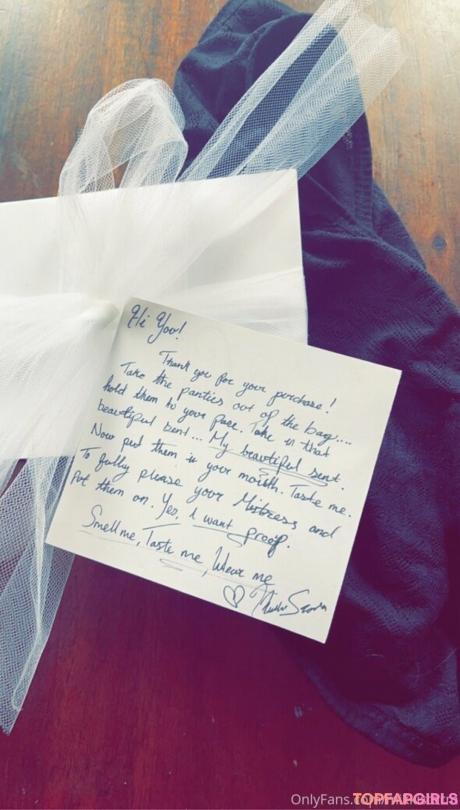 Hi You!
Thank you for your purchase!
Take the panties out of the bag....
hold them to your face. Take in that
beautiful sent... My beautiful sent.
Now put them in your mouth. Taste me.
To fully please your Mistress and
Put them on. Yes, I want proof.
Smell me, Taste me, Wear me
OnlyFans.com
TOPFAPGIRLS